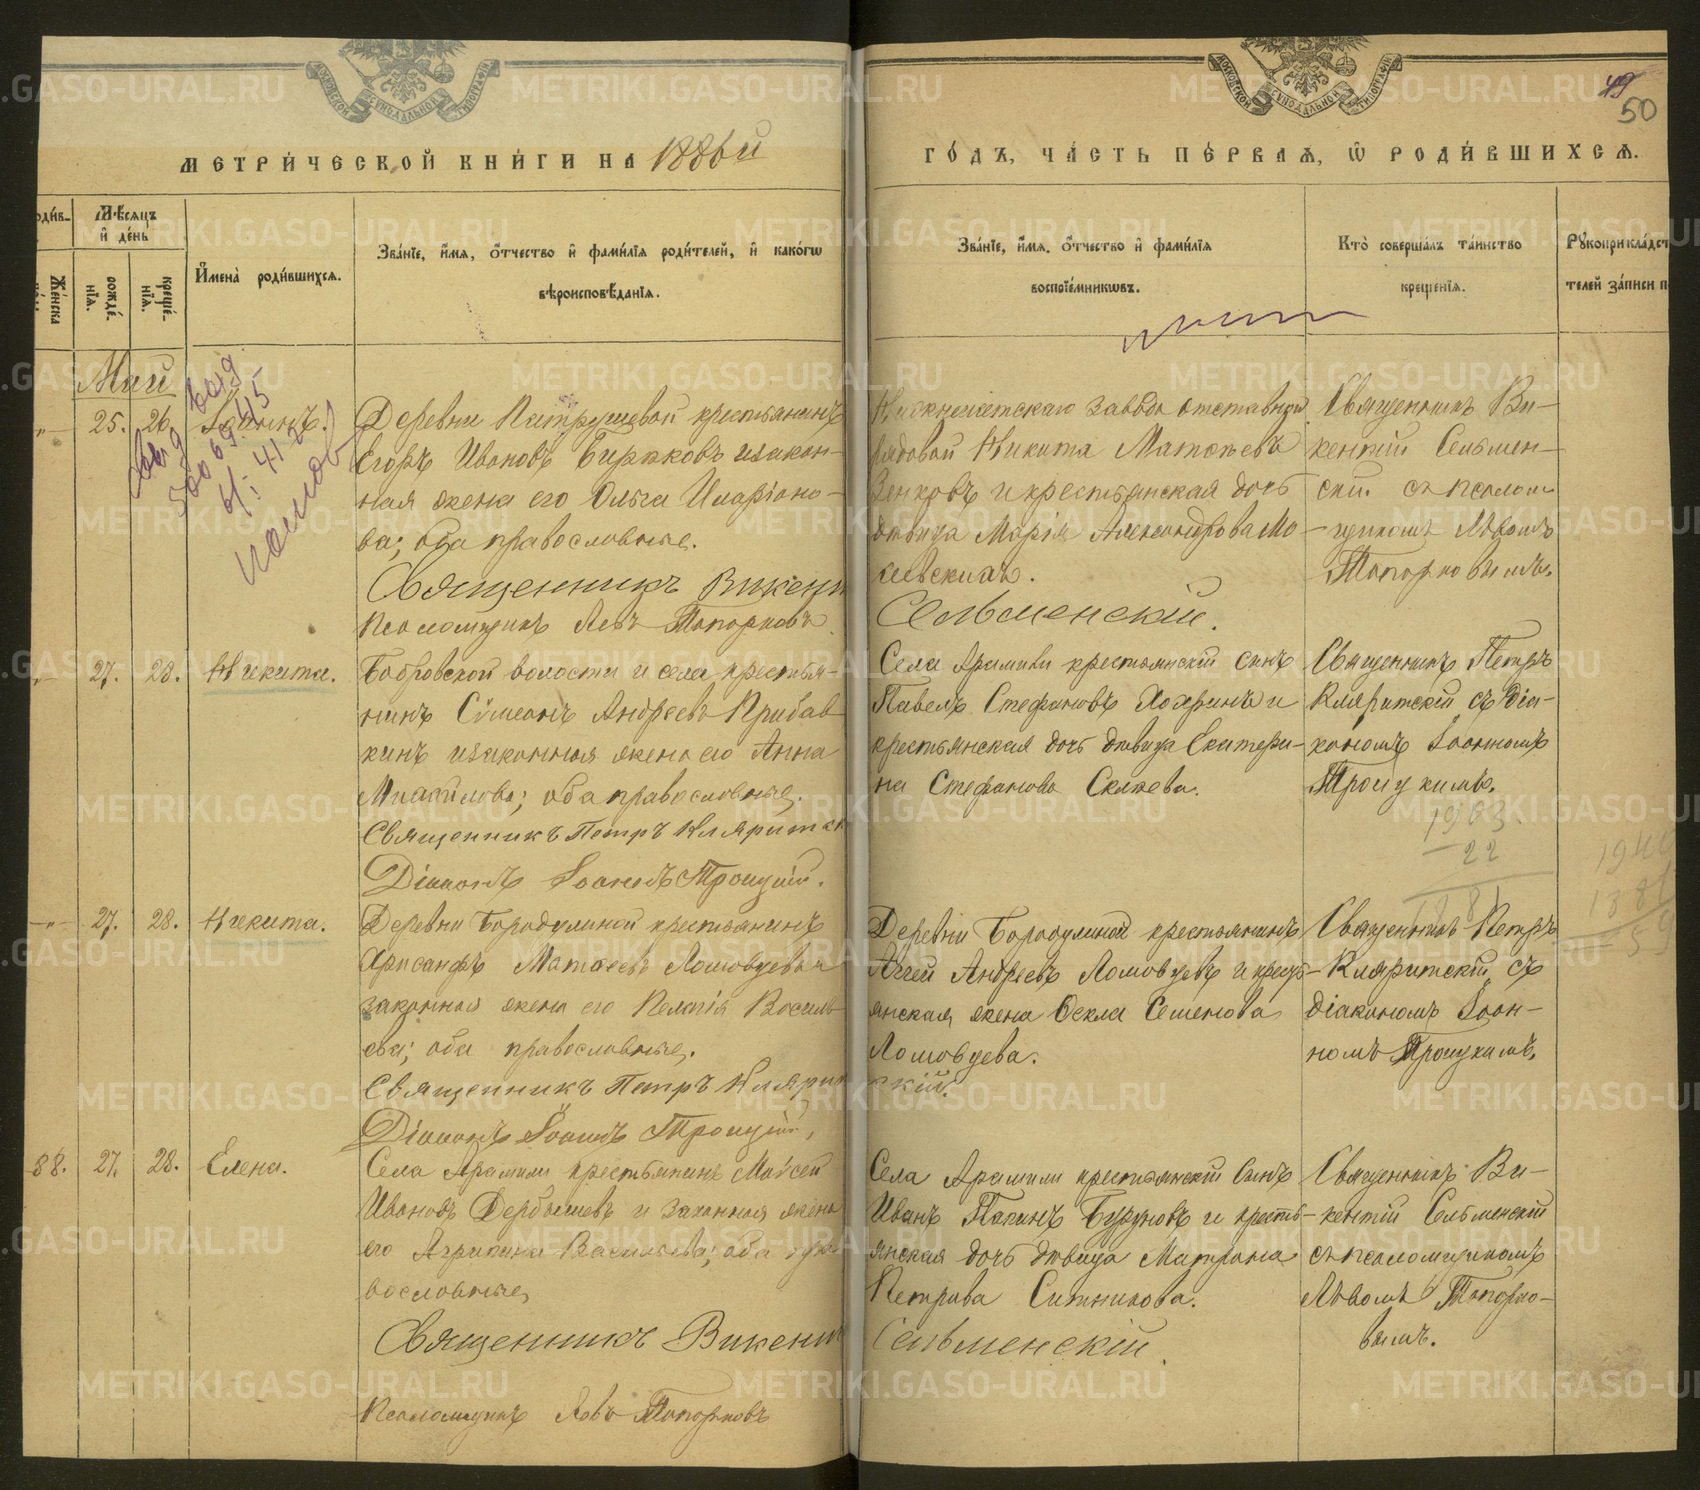 МЕТРИ́ЧЕСКОЙ КНИ́ГИ НА 1886й
ГО́ДЪ, ЧА́СТЬ ПЕ́РВАЯ, Ѡ РОДИ́ВШИХСЯ.
49
50
МОСКОВСКОЙ СѴНОДАЛЬНОЙ ТИПОГРАФІИ
МОСКОВСКОЙ СѴНОДАЛЬНОЙ ТИПОГРАФІИ
Мѣсяцъ и де́нь
рожде́нія.
креще́нія.
Женска
Имена̀ роди́вшихся.
Зва́ніе, и́мя, о́тчество и фами́лія роди́телей, и како́гѡ
вѣроисповѣ́данія.
Зва́ніе, и́мя, о́тчество и фами́лія
воспріе́мникѡвъ.
Кто̀ соверша́лъ та́инство
креще́нія.
Рукоприкла́дст
телей за́писи п
Май
25. 26. Іоаннъ.
Деревни Патрушевой крестьянинъ
Егоръ Ивановъ Бирюковъ и закон-
ная жена его Ольга Иларіоно-
ва; оба православные.
Священникъ Викент
Псаломщикъ Левъ Топорковъ
Нижнеисетскаго завода отставной
рядовой Никита Матѳеевъ
Зенковъ и крестьянская дочь
дѣвица Марія Александрова Мо
кеевскихъ.
Сельменскій.
Священникъ Ви-
кентій Сельмен-
скій съ псалом-
щикомъ Львомъ
Топорковымъ.
27. 28. Никита.
Бобровской волости и села крестья-
нинъ Сѵмеонъ Андреевъ Прибав
кинъ и законная жена его Анна
Михайлова; оба православные.
Священникъ Петръ Кляритск
Діаконъ Іоаннъ Троицкій.
Села Арамили крестьянскій сынъ
Павелъ Стефановъ Хохринъ и
крестьянская дочь дѣвица Екатери-
на Стефанова
Священникъ Петръ
Кляритскій съ діа-
кономъ Іоанномъ
Троицкимъ.
1903.
22
1881
1940
1881
59
27. 28. Никита.
Деревни Бородулиной крестьянинъ
Хрисанфъ Матѳеевъ Ломовцевъ и
законная жена его Пелагія Василь
ева; оба православные.
Священникъ Петръ Клярит
Діаконъ Іоаннъ Троицкій,
Деревни Бородулиной крестьянинъ
Андреевъ Ломовцевъ и крест-
янская жена Ѳекла Семенова
Ломовцева.
скій.
Священникъ Петръ
Кляритскій съ
діакономъ Іоан-
номъ Троицкимъ.
88. 27. 28. Елена.
Села Арамили крестьянинъ Моѵсей
Ивановъ Дербышевъ и законная жена
его Агрипина Васильева; оба пра
вославные.
Священникъ Викент
Псаломщикъ Левъ Топорковъ
Села Арамили крестьянскій сынъ
Иванъ Бурдуновъ и кресть-
янская дочь дѣвица Матрона
Петрова Ситникова.
Сельменскій.
Священникъ Ви-
кентій Сельменскій
съ псаломщикомъ
Львомъ Топорко-
вымъ.
METRIKI.GASO-URAL.RU